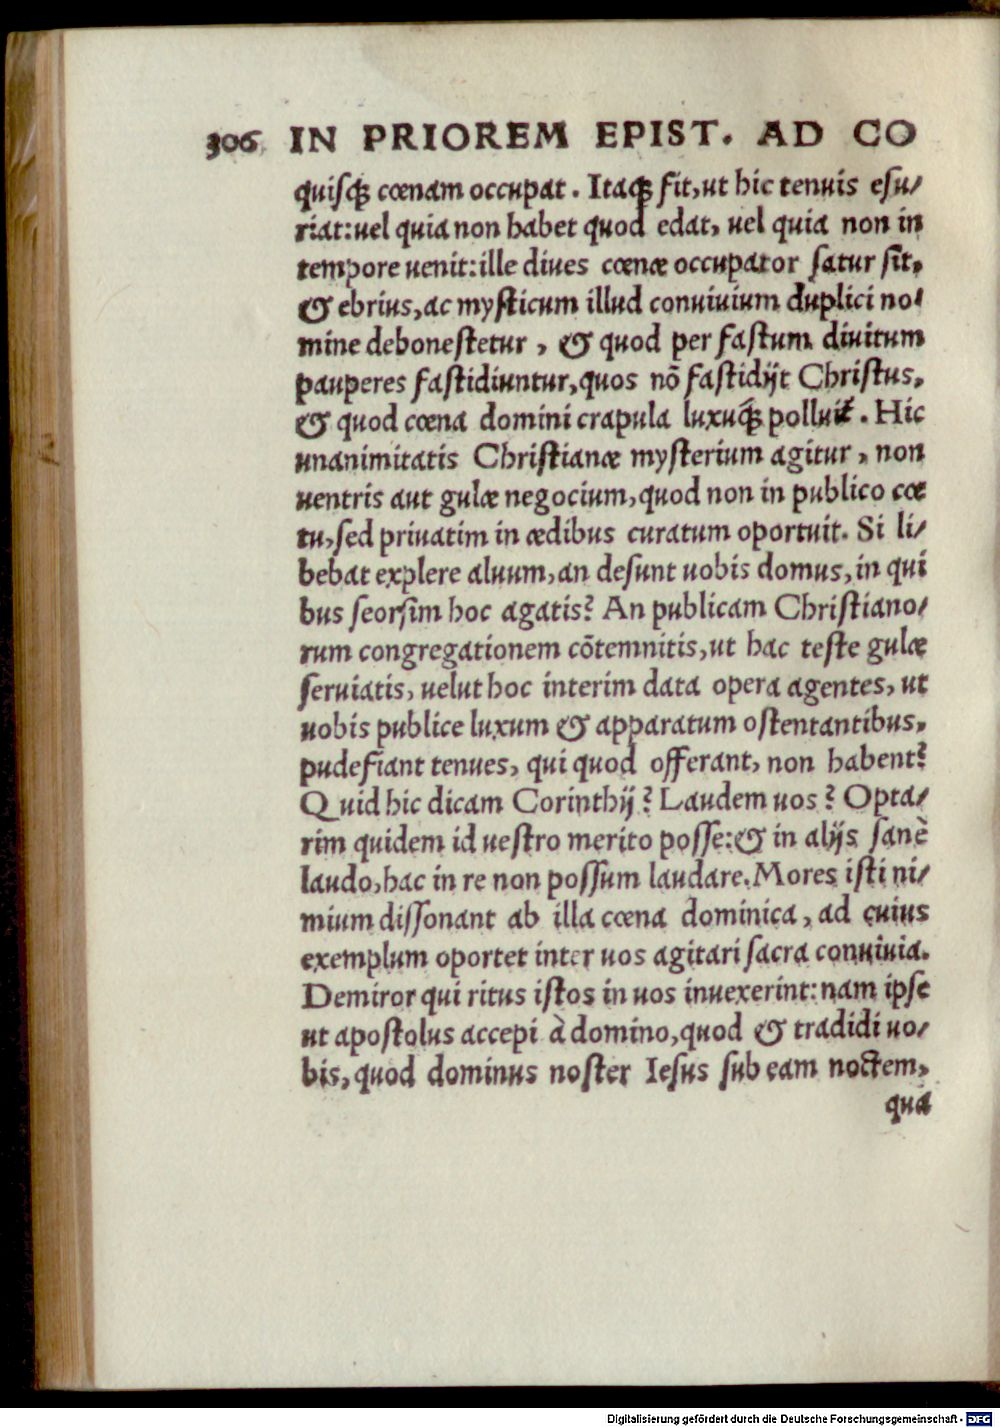 306 IN PRIOREM EPIST. AD CO
quiſqꝫ cœnam occupat. Itaqꝫ fit, ut hic tenuis eſu/
riat: uel quia non habet quod edat, uel quia non in
tempore uenit: ille diues cœnæ occupator ſatur ſit,
& ebrius, ac myſticum illud conuiuium duplici no/
mine dehoneſtetur, & quod per faſtum diuitum
pauperes faſtidiuntur, quos nō faſtidijt Chriſtus,
& quod cœna domini crapula luxuqꝫ polluit. Hic
unanimitatis Chriſtianæ myſterium agitur, non
uentris aut gulæ negocium, quod non in publico cœ
tu, ſed priuatim in ædibus curatum oportuit. Si li/
bebat explere aluum, an deſunt uobis domus, in qui
bus ſeorſim hoc agatis? An publicam Chriſtiano/
rum congregationem cōtemnitis, ut hac teſte gulæ
ſeruiatis, uelut hoc interim data opera agentes, ut
uobis publice luxum & apparatum oſtentantibus,
pudefiant tenues, qui quod offerant, non habent?
Quid hic dicam Corinthij? Laudem uos? Opta/
rim quidem id ueſtro merito poſſe: & in alijs ſanè
laudo, hac in re non poſſum laudare. Mores iſti ni/
mium diſſonant ab illa cœna dominica, ad cuius
exemplum oportet inter uos agitari ſacra conuiuia.
Demiror qui ritus iſtos in uos inuexerint: nam ipſe
ut apoſtolus accepi à domino, quod & tradidi uo/
bis, quod dominus noſter Ieſus ſub eam noctem,
qua
Digitalisierung gefördert durch die Deutsche Forschungsgemeinschaft - DFG